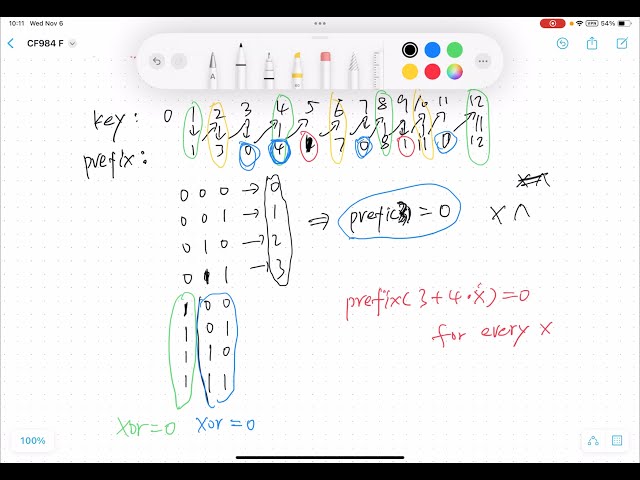 10:11 Wed Nov 6
54%
CF984 F
key: 0 1 2 3 4 5 6 7 8 9 10 11 12
prefix: 1 3 0 4 1 7 0 8 1 11 0 12
0 0 0 → 0
0 0 1 → 1
0 1 0 → 2
0 1 1 → 3
⇒ prefix3 = 0
x ^
1 0 0
1 0 1
1 1 0
1 1 1
xor=0 xor=0
prefix(3+4·x)=0
for every x
100%